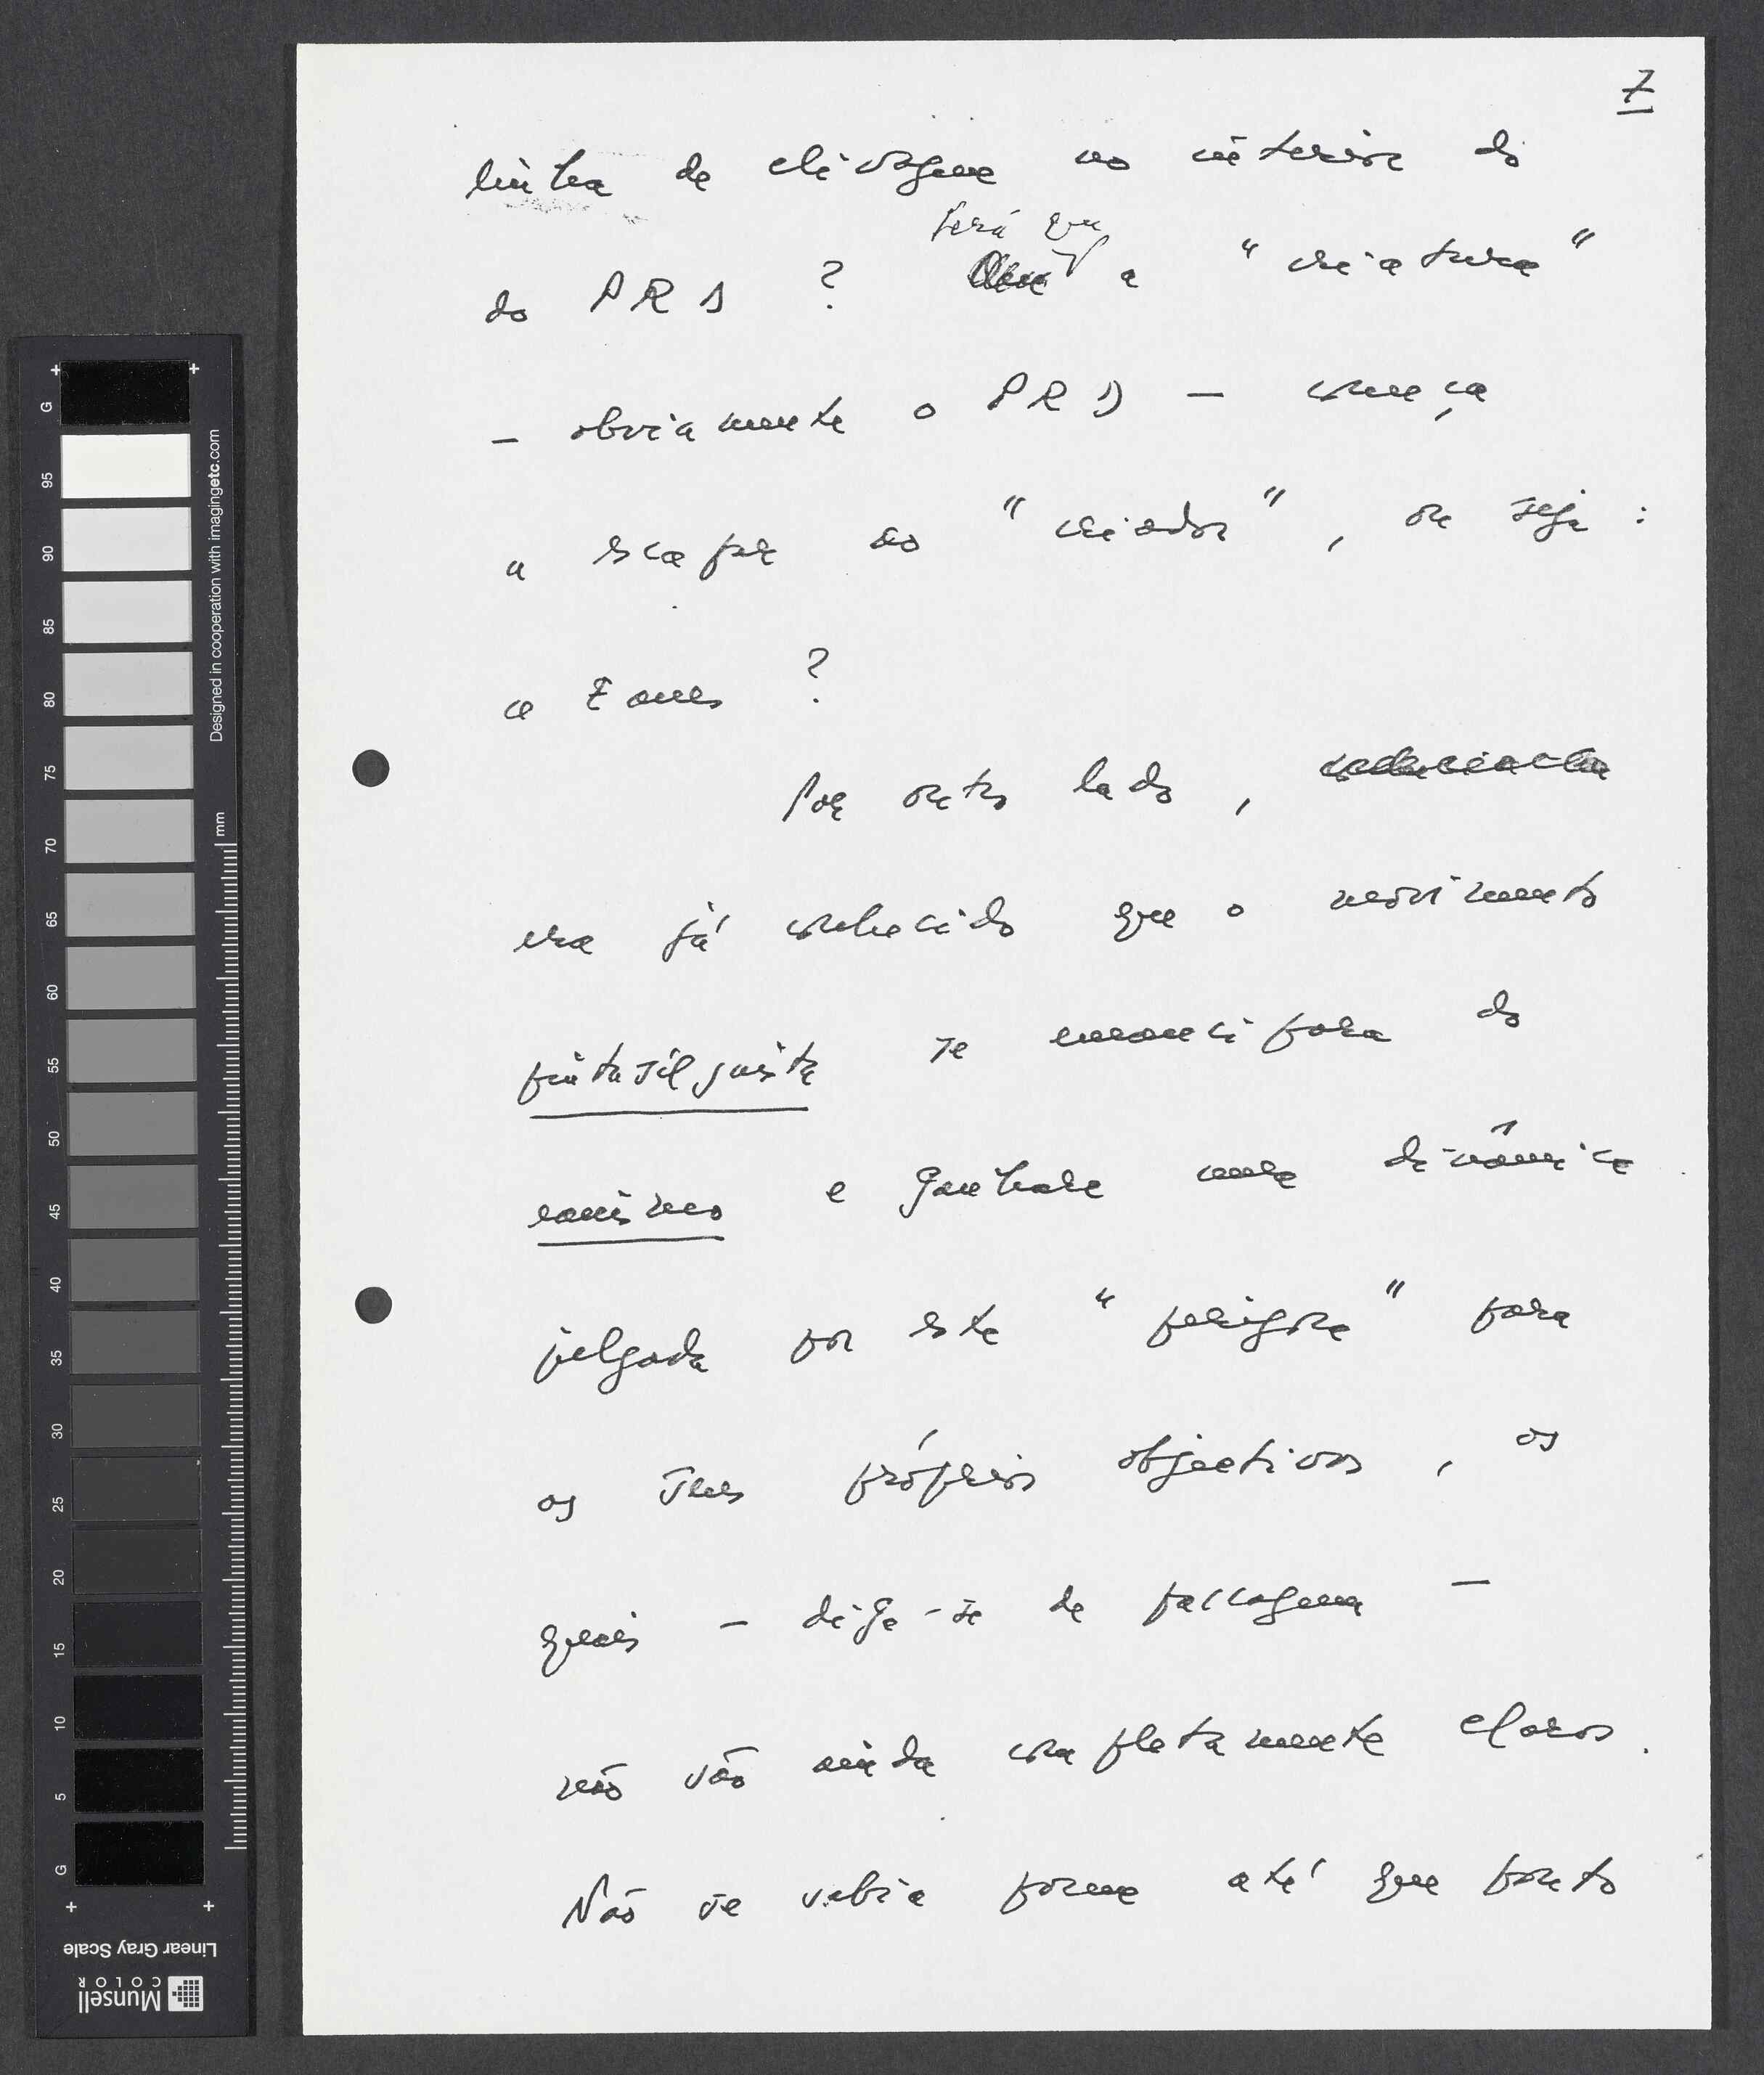 7
linha de clivagem no interior do
Será que
do PRD ? a "criatura"
- obviamente o PRD - começa
a escapar ao "criador", ou seja :
a Eanes ?
Por outro lado ,
era já conhecido que o movimento
pintasilguista se emancipara do
eanismo e ganhara uma dinâmica
julgada por este "perigosa" para
os seus próprios objectivos , os
quais - diga-se de passagem -
não são ainda completamente claros .
Não se sabia porém até que ponto
+ +
G
95
90
85
80
75
70
65
60
55
50
45
40
35
30
25
20
15
10
5
G
+ +
mm
Designed in cooperation with imagingetc.com
Linear Gray Scale
Munsell
COLOR